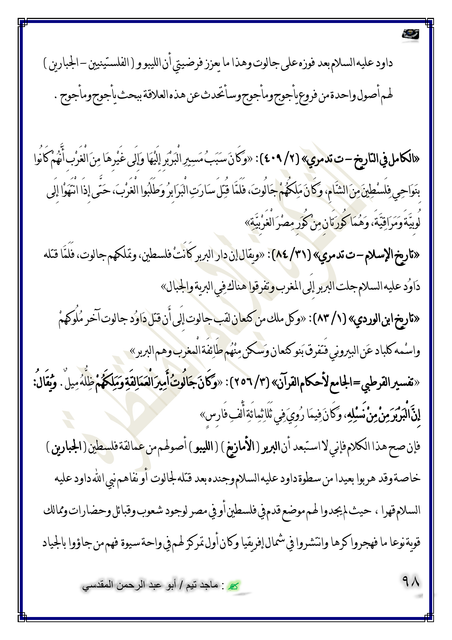 داود عليه السلام بعد فوزه على جالوت وهذا ما يعزز فرضيتي أن الليبو و ( الفلستينيين – الجبارين )
لهم أصول واحدة من فروع يأجوج ومأجوج وسأتحدث عن هذه العلاقة ببحث يأجوج ومأجوج .
«الكامل في التاريخ – ت تدمري» (٢/ ٤٠٩): «وَكَانَ سَبَبُ مَسِيرِ الْبَرْبَرِ إِلَيْهَا وَإِلَى غَيْرِهَا مِنَ الْغَرْبِ أَنَّهُمْ كَانُوا
بِنَوَاحِي فِلَسْطِينَ مِنَ الشَّامِ، وَكَانَ مَلِكُهُمْ جَالُوتَ، فَلَمَّا قُتِلَ سَارَتِ الْبَرَابِرُ وَطَلَبُوا الْغَرْبَ، حَتَّى إِذَا انْتَهَوْا إِلَى
لُوبِيَّةَ وَمَرَاقِيَّةَ، وَهُمَا كُورَتَانِ مِنْ كُوَرِ مِصْرَ الْغَرْبِيَّةِ»
«تاريخ الإسلام – ت تدمري» (٣١/ ٨٤): «ويقال إن دار البربر كَانَتْ فلسطين، وتملكهم جالوت، فَلَمَّا قتله
دَاوُد عليه السلام جلت البربر إِلَى المغرب وتفرقوا هناك في البرية والجبال»
«تاريخ ابن الوردي» (١/ ٨٣): «وكل ملك من كنعان لقب جالوت إِلَى أَن قتل دَاوُد جالوت آخر مُلُوكهمْ
واسْمه كلياد عَن البيروني فَتفرق بَنو كنعان وسكن مِنْهُم طَائِفَة الْمغرب وهم البربر»
«تفسير القرطبي = الجامع لأحكام القرآن» (٣/ ٢٥٦): «وَكَانَ جَالُوتُ أَمِيرَ الْعَمَالِقَةِ وَمَلِكَهُمْ ظِلُّهُ مِيلٌ. وَيُقَالُ:
إِنَّ الْبَرْبَرَ مِنْ مِنْ نَسْلِهِ، وَكَانَ فِيمَا رُوِيَ فِي ثَلَاثِمِائَةِ أَلْفِ فَارِسٍ»
فإن صح هذا الكلام فإني لا استبعد أن البربر ( الأمازيغ ) ( الليبو ) أصولهم من عمالقة فلسطين ( الجبارين )
خاصة وقد هربوا بعيدا من سطوة داود عليه السلام وجنده بعد قتله لجالوت أو نفاهم نبي الله داود عليه
السلام قهرا ، حيث لم يجدوا لهم موضع قدم في فلسطين أو في مصر لوجود شعوب وقبائل وحضارات وممالك
قوية نوعا ما فهجروا كرها وانتشروا في شمال إفريقيا وكان أول تمركز لهم في واحة سيوة فهم من جاؤوا بالجياد
: ماجد تيم / أبو عبد الرحمن المقدسي
٩٨